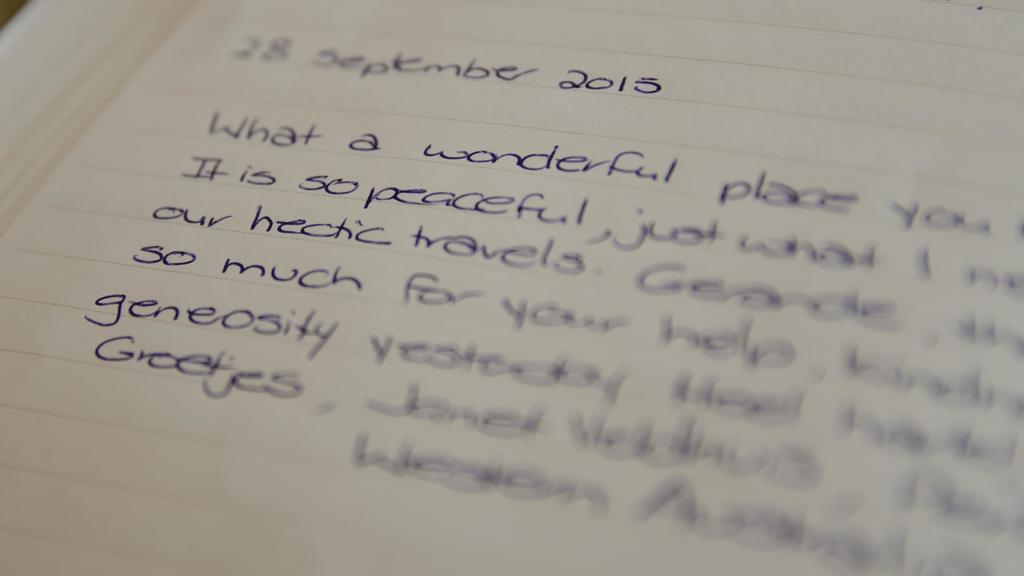 28 September 2015
What a wonderful place you
It is so peaceful, just what I
our hectic travels. Gerarde,
so much for your help,
geneosity yesterday. Heel
Greetjes, Janet
Western Australia